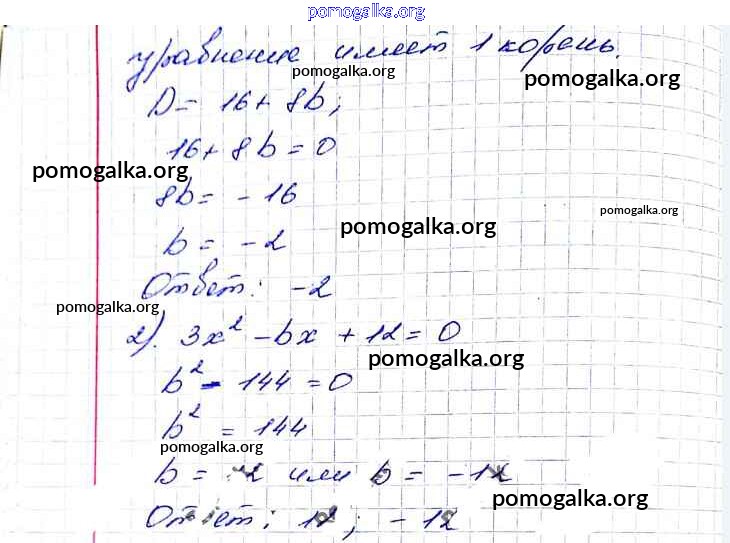 pomogalka.org
уравнение имеет 1 корень.
pomogalka.org
pomogalka.org
D = 16 + 8b;
16 + 8b = 0
pomogalka.org
8b = - 16
pomogalka.org
pomogalka.org
b = - 2
Ответ: -2
pomogalka.org
2). 3x² - bx + 12 = 0
pomogalka.org
b² - 144 = 0
b² = 144
pomogalka.org
b = 12 или b = -12
pomogalka.org
Ответ: 12; -12